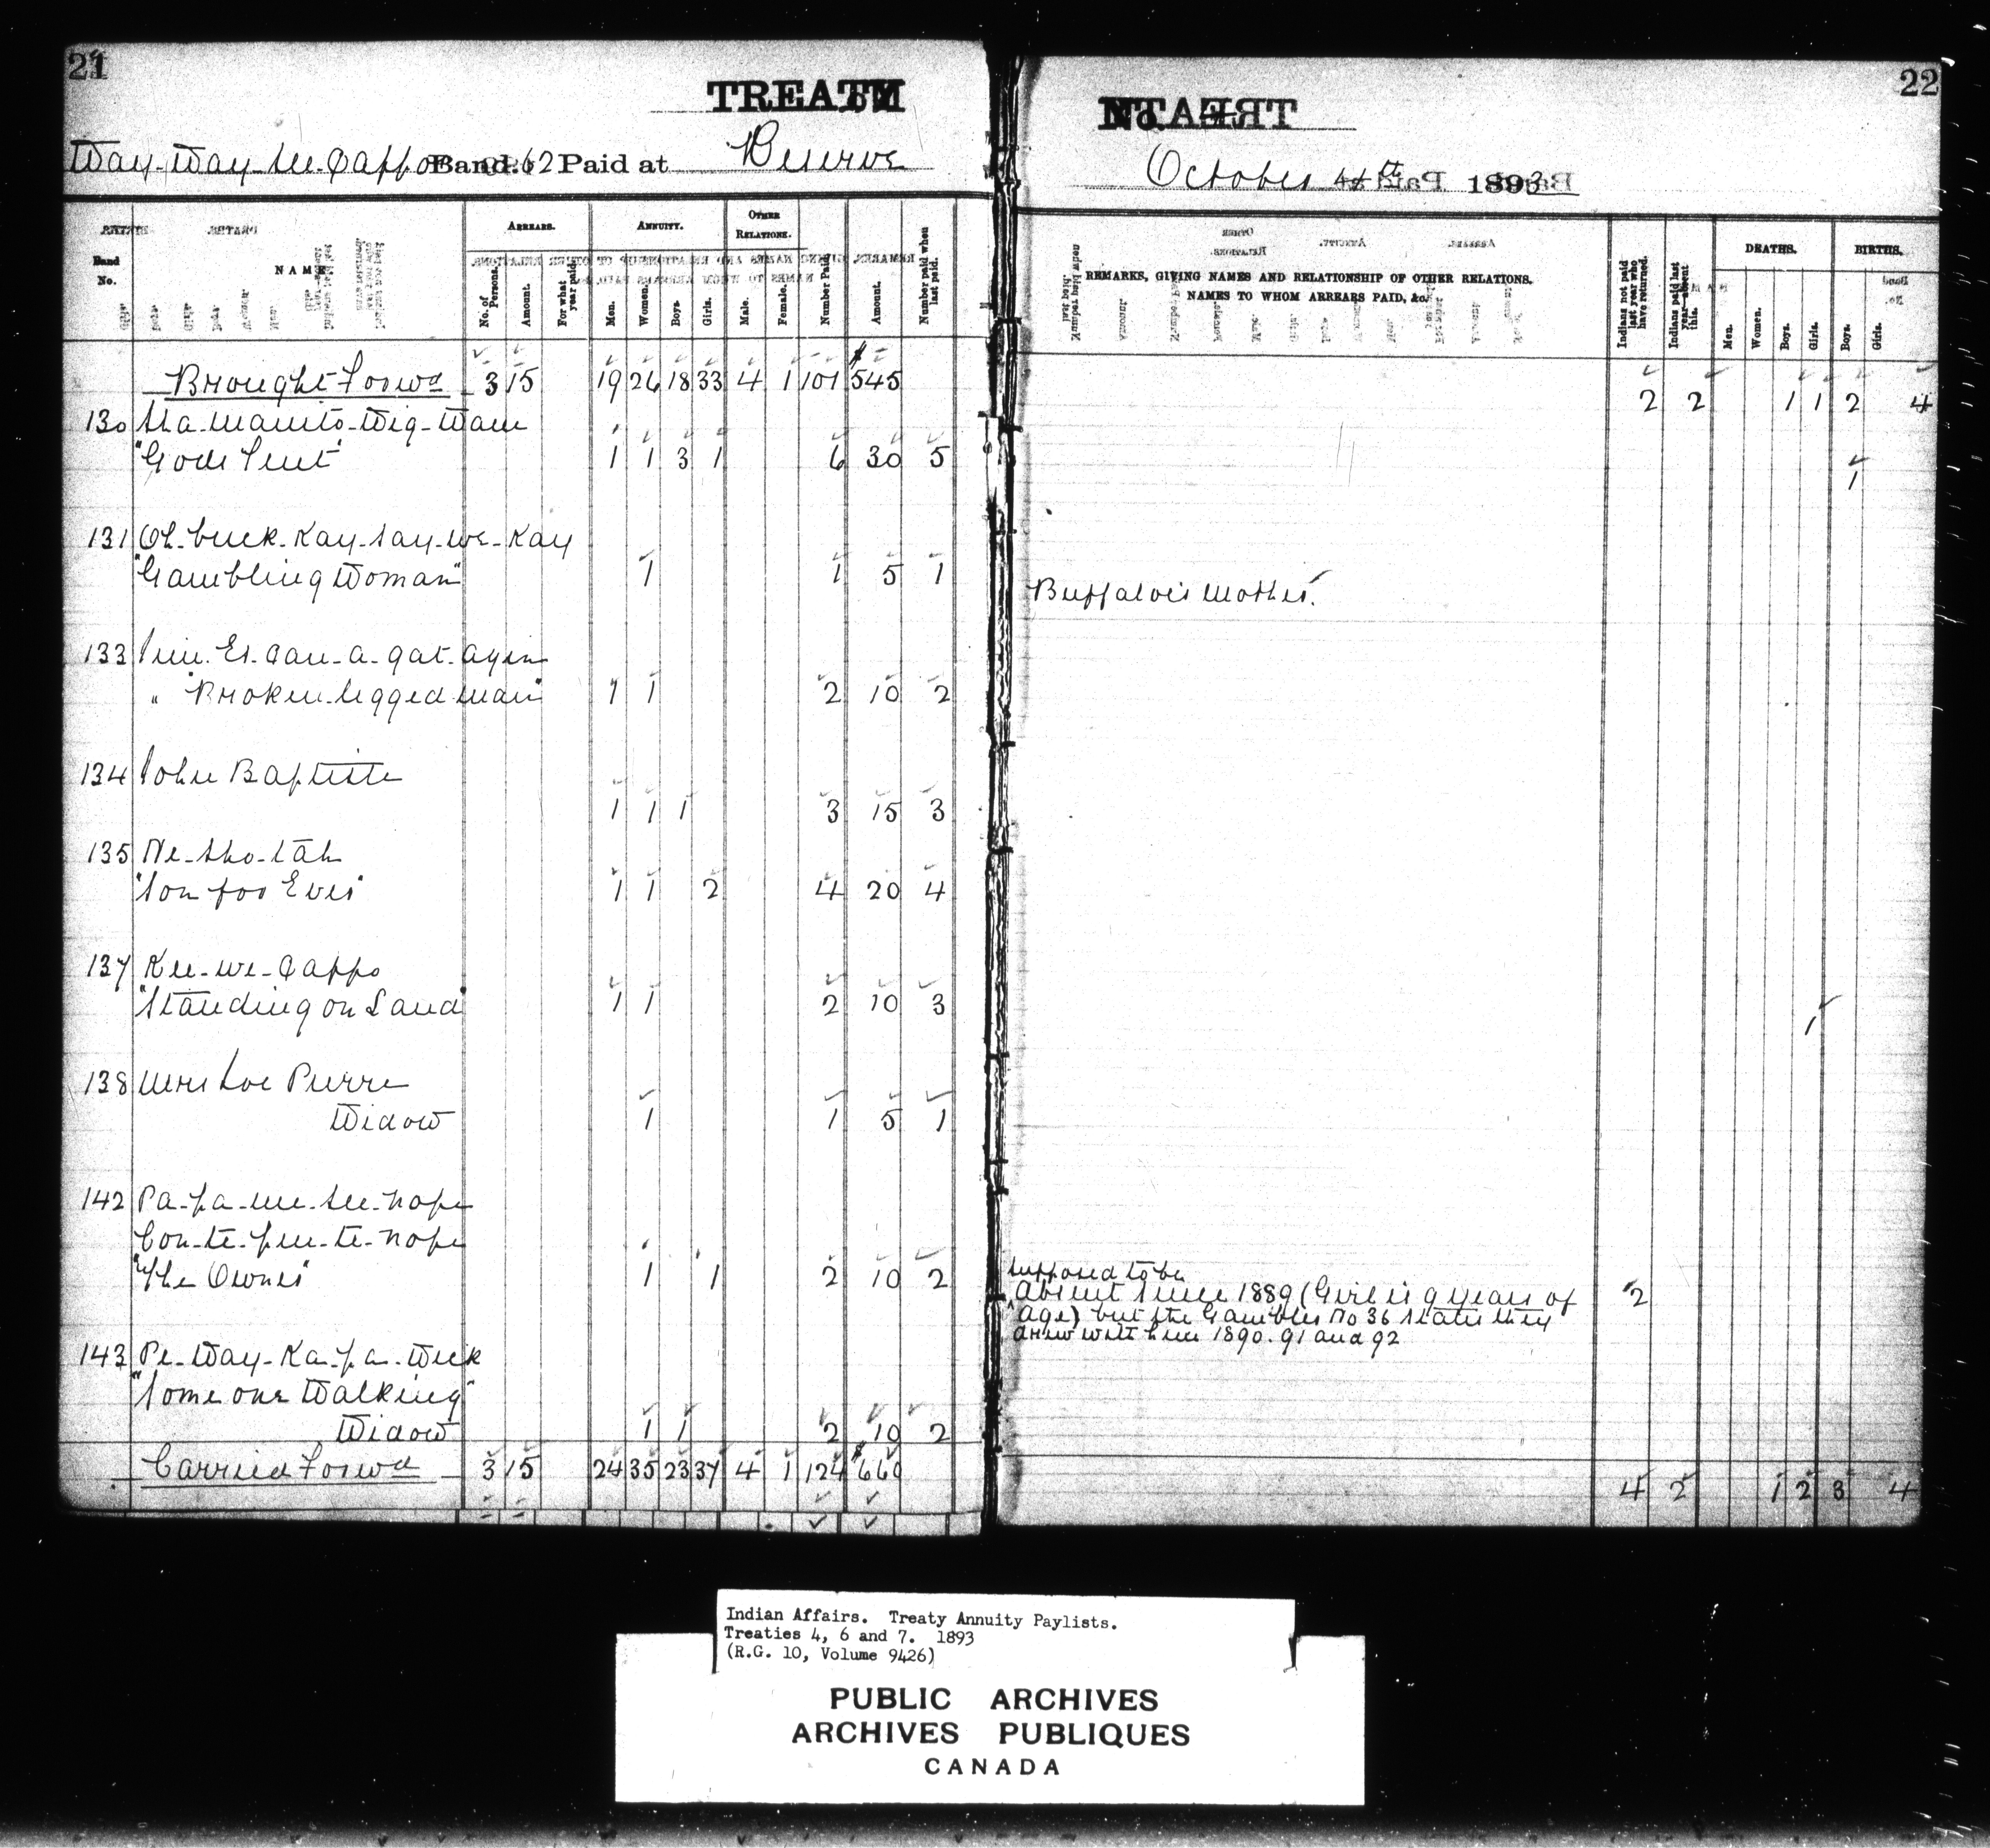 21
TREATY
Way-Way-see-Cappo Band. No. 62 Paid at Reserve
Band No.
NAME
ARREARS.
No. of Persons.
Amount.
For what year paid.
ANNUITY.
Men.
Women.
Boys.
Girls.
OTHER RELATIONS.
Male.
Female.
Number Paid.
Amount.
Number paid when last paid.
Brought Forwd 3 15 19 26 18 33 4 1 101 $545
130 Sha-manito-Wig-Wam
"Gods Tent" 1 1 3 1 6 30 5
131 Oh-buck-Kay-say-we-Kay
"Gambling Woman" 1 1 5 1
133 Jim. Es-can-a-gat-agin
" "Broken legged man" 1 1 2 10 2
134 John Baptiste
1 1 1 3 15 3
135 Ne-sho-tah
"Son for Ever" 1 1 2 4 20 4
137 Kee-we-Cappo
"Standing on Land" 1 1 2 10 3
138 Mrs Joe Pierre
Widow 1 1 5 1
142 Pa-pa-me-see-nope
Con-te-pee-te-nope
"The Owner" 1 1 2 10 2
143 Pe-Way-Ka-pa-Week
"Some one Walking"
Widow 1 1 2 10 2
Carried Forwd 3 15 24 35 23 37 4 1 124 $660
22
TREATY No. 4
October 4th 1893
REMARKS, GIVING NAMES AND RELATIONSHIP OF OTHER RELATIONS.
NAMES TO WHOM ARREARS PAID, &c.
Indians not paid last year who have returned.
Indians paid last year absent this.
DEATHS.
Men.
Women.
Boys.
Girls.
BIRTHS.
Boys.
Girls.
2 2 1 1 2 4
1
Buffalo's Mother.
1
Supposed to be
Absent since 1889 (Girl is 9 years of
age) but the Gambler No 36 states they
drew with him 1890. 91 and 92
2
4 2 1 2 3 4
Indian Affairs. Treaty Annuity Paylists.
Treaties 4, 6 and 7. 1893
(R.G. 10, Volume 9426)
PUBLIC ARCHIVES
ARCHIVES PUBLIQUES
CANADA